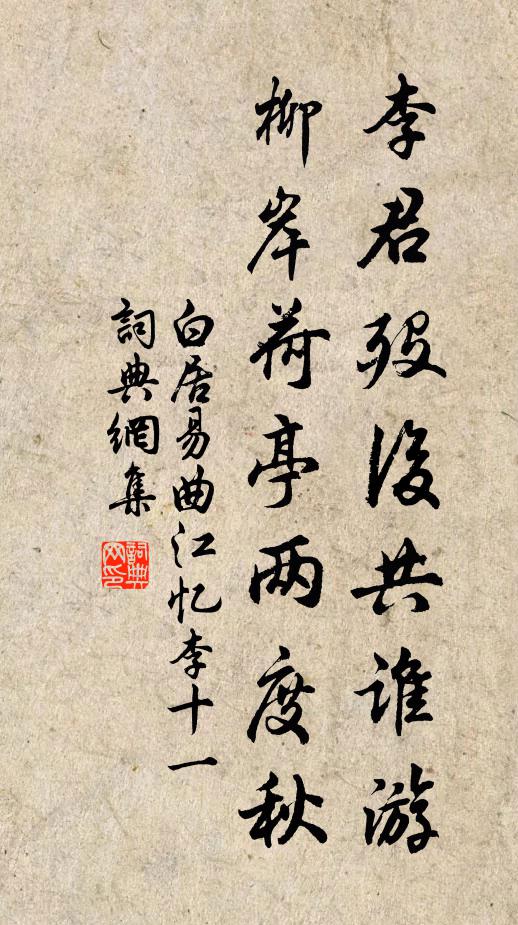 李君殁後共谁游
柳岸荷亭两度秋
白居易曲江忆李十一
詞典網集
詞典网印